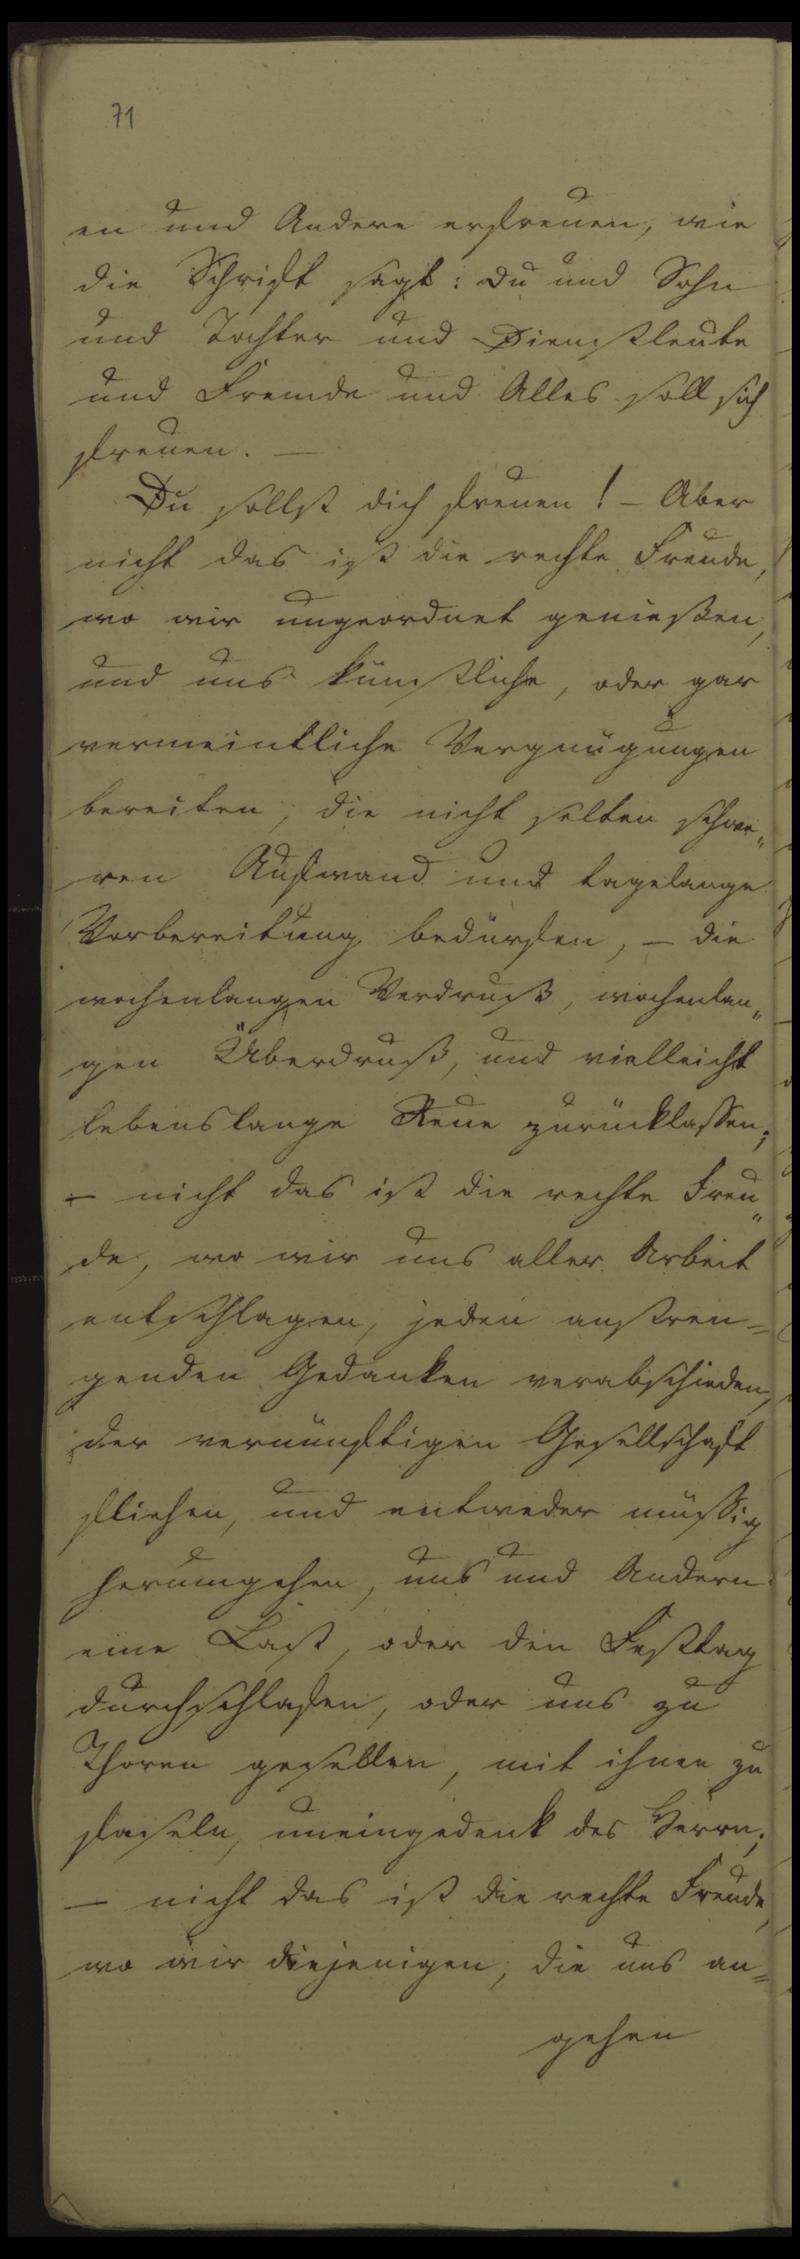 71
en und Andere erfreuen, wie
die Schrift sagt: du und Sohn
und Tochter und Dienstleute
und Fremde und Alles soll sich
freuen. —
Du sollst dich freuen! – Aber
nicht das ist die rechte Freude,
wo wir ungeordnet genießen,
und uns künstliche, oder gar
vermeintliche Vergnügungen
bereiten, die nicht selten schwe„
ren Aufwand und tagelange
Vorbereitung bedürfen, – die
wochenlangen Verdruß, wochenlan„
gen Überdruß, und vielleicht
lebenslange Reue zurücklassen;
– nicht das ist die rechte Freu„
de, wo wir uns aller Arbeit
entschlagen, jeden anstren=
genden Gedanken verabschieden,
der vernünftigen Gesellschaft
fliehen, und entweder müssig
herumgehen, uns und Andern
eine Last, oder den Festtag
durchschlafen, oder uns zu
Thoren gesellen, mit ihnen zu
faseln, uneingedenk des Herrn;
— nicht das ist die rechte Freude,
wo wir diejenigen, die uns an=
gehen